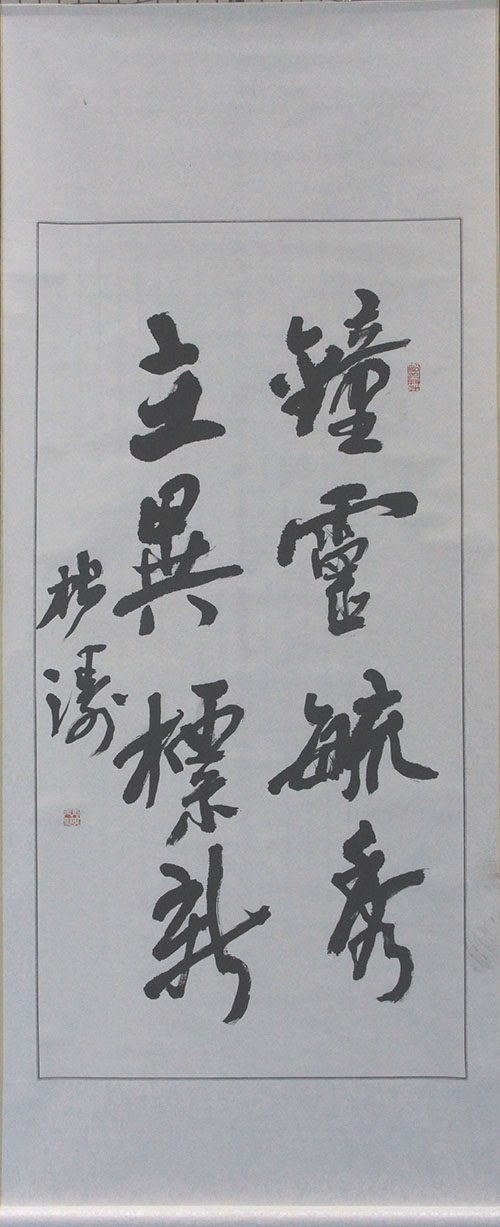 鐘靈毓秀
立異標新